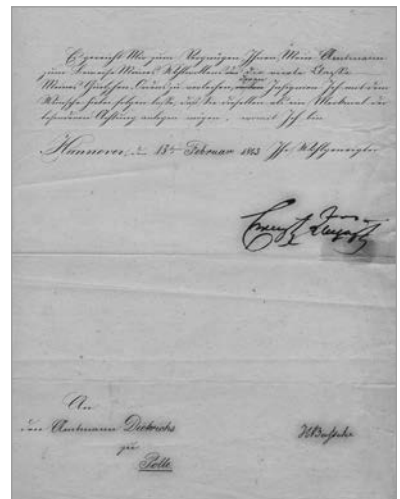 Es gereicht Mir zum Vergnügen Ihnen, Mein Amtmann
zum Beweise Meines Wohlwollens die vierte Classe
Meines Guelphen-Ordens zu verleihen, deren Insignien Ich mit dem
Wunsche hierbei folgen lasse, daß Sie dieselben als ein Merkmal der
besonderen Achtung anlegen mögen, womit Ich bin
Hannover, den 18ten Februar 1843 Ihr Wohlgeneigter
Ernst August
An
den Amtmann Dieterichs
zu
Polle